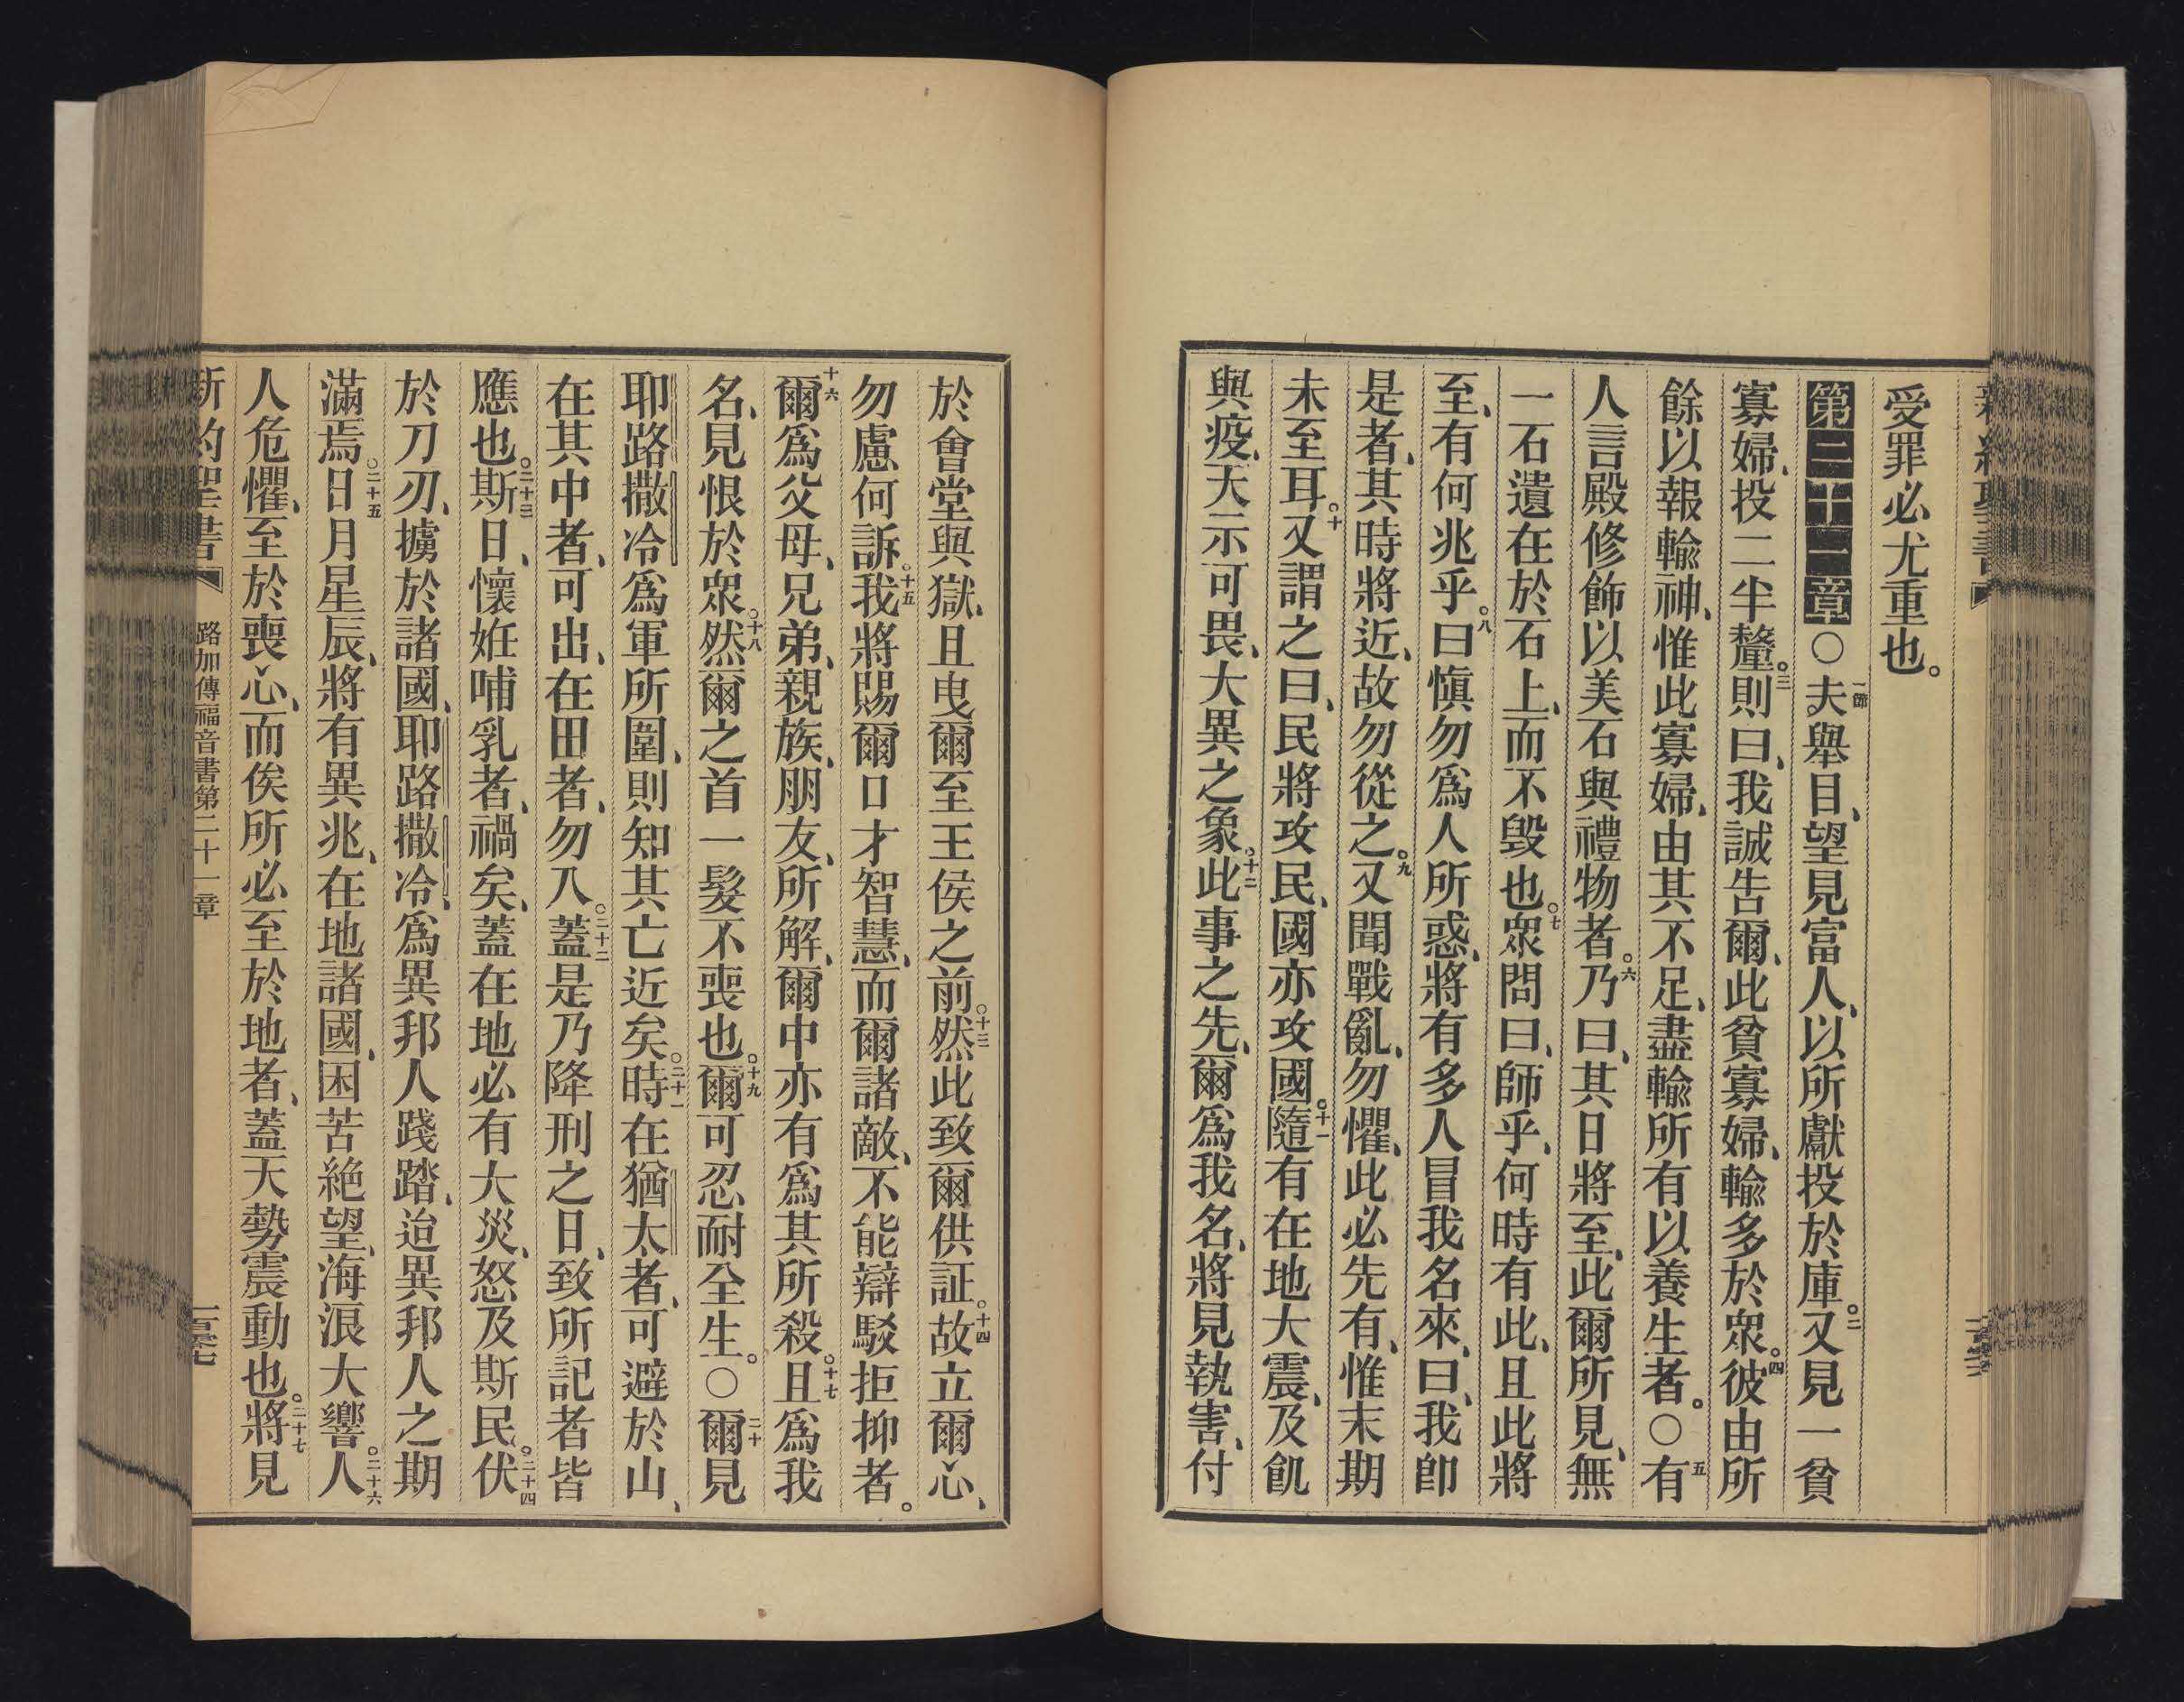 受罪必尤重也。
第二十一章○一節夫舉目、望見富人、以所獻投於庫。二又見一貧
寡婦、投二半釐。三則曰、我誠告爾、此貧寡婦、輸多於衆。四彼由所
餘以報輸神、惟此寡婦、由其不足、盡輸所有以養生者。○五有
人言殿修飾以美石與禮物者。六乃曰、其日將至、此爾所見、無
一石遺在於石上、而不毀也。七衆問曰、師乎、何時有此、且此將
至、有何兆乎。八曰愼勿爲人所惑、將有多人冒我名來、曰、我卽
是者、其時將近、故勿從之。九又聞戰亂、勿懼、此必先有、惟末期
未至耳。十又謂之曰、民將攻民、國亦攻國。十一隨有在地大震、及飢
與疫、天示可畏、大異之象。十二此事之先、爾爲我名、將見執害、付
於會堂與獄、且曳爾至王侯之前。十三然此致爾供証。十四故立爾心、
勿慮何訴。十五我將賜爾口才智慧、而爾諸敵、不能辯駁拒抑者。
十六爾爲父母、兄弟、親族、朋友、所解、爾中亦有爲其所殺。十七且爲我
名、見恨於衆。十八然爾之首一髮不喪也。十九爾可忍耐全生。○二十爾見
耶路撒冷爲軍所圍、則知其亡近矣。二十一時在猶太者、可避於山、
在其中者、可出、在田者、勿入。二十二蓋是乃降刑之日、致所記者皆
應也。二十三斯日、懷妊哺乳者、禍矣、蓋在地必有大災、怒及斯民。二十四伏
於刀刃、擄於諸國、耶路撒冷、爲異邦人踐踏、迨異邦人之期
滿焉。二十五日月星辰、將有異兆、在地諸國、困苦絶望、海浪大響。二十六人
人危懼、至於喪心、而俟所必至於地者、蓋天勢震動也。二十七將見
新約聖書 路加傳福音書第二十一章